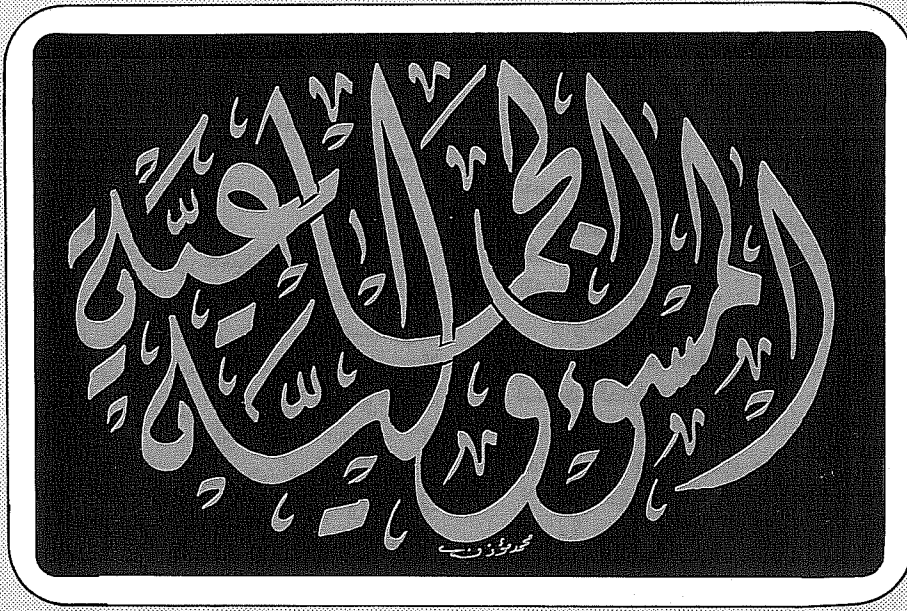 المسؤولية الجماعية
محمد مؤذن